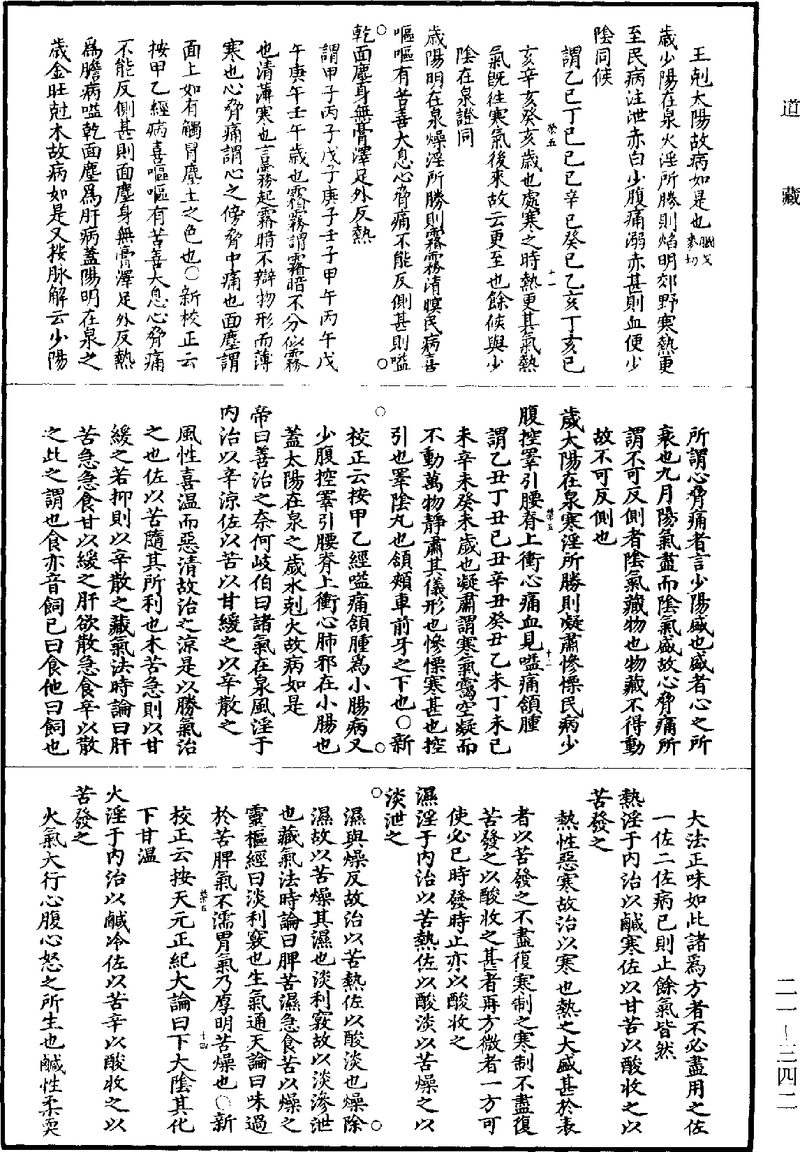 道藏
王剋太陽故病如是也
歲少陽在泉火淫所勝則焰明郊野寒熱更
至民病注泄赤白少腹痛溺赤甚則血便少
陰同候
謂乙巳丁巳己巳辛巳癸巳乙亥丁亥己
亥辛亥癸亥歲也處寒之時熱更其氣熱
氣既往寒氣後來故云更至也餘候與少
陰在泉證同
歲陽明在泉燥淫所勝則霿霧清暝民病喜
嘔嘔有苦善大息心脅痛不能反側甚則嗌
乾面塵身無膏澤足外反熱
謂甲子丙子戊子庚子壬子甲午丙午戊
午庚午壬午歲也霿霧謂霧暗不分似霧
也清薄寒也言霧起霿暗不辯物形而薄
寒也心脅痛謂心之傍脅中痛也面塵謂
面上如有觸冒塵土之色也○新校正云
按甲乙經病喜嘔嘔有苦善大息心脅痛
不能反側甚則面塵身無膏澤足外反熱
爲膽病嗌乾面塵爲肝病蓋陽明在泉之
歲金旺剋木故病如是又按脉解云少陽
所謂心脅痛者言少陽盛也盛者心之所
表也九月陽氣盡而陰氣盛故心脅痛所
謂不可反側者陰氣藏物也物藏不得動
故不可反側也
歲太陽在泉寒淫所勝則凝肅慘慄民病少
腹控睪引腰脊上衝心痛血見嗌痛頷腫
謂乙丑丁丑己丑辛丑癸丑乙未丁未己
未辛未癸未歲也凝肅謂寒氣靄空凝而
不動萬物靜肅其儀形也慘慄寒甚也控
引也睪陰丸也頷頰車前牙之下也○新
校正云按甲乙經嗌痛頷腫爲小腸病又
少腹控睪引腰脊上衝心肺邪在小腸也
蓋太陽在泉之歲水剋火故病如是
帝曰善治之奈何岐伯曰諸氣在泉風淫于
内治以辛涼佐以苦以甘緩之以辛散之
風性喜温而惡清故治之涼是以勝氣治
之也佐以苦隨其所利也木苦急則以甘
緩之苦抑則以辛散之藏氣法時論曰肝
苦急急食甘以緩之肝欲散急食辛以散
之此之謂也食亦音飼已曰食他曰飼也
大法正味如此諸爲方者不必盡用之佐
一佐二佐病已則止餘氣皆然
熱淫于内治以鹹寒佐以甘苦以酸收之以
苦發之
熱性惡寒故治以寒也熱之大盛甚於表
者以苦發之不盡復寒制之寒制不盡復
苦發之以酸收之甚者再方微者一方可
使必已時發時止亦以酸收之
濕淫于内治以苦熱佐以酸淡以苦燥之以
淡泄之
濕與燥反故治以苦熱佐以酸淡也燥除
濕故以苦燥其濕也淡利竅故以淡滲泄
也藏氣法時論曰脾苦濕急食苦以燥之
靈樞經曰淡利竅也生氣通天論曰味過
於苦脾氣不濡胃氣乃厚明苦燥也○新
校正云按天元正紀大論曰下大陰其化
下甘温
火淫于内治以鹹冷佐以苦辛以酸收之以
苦發之
火氣大行心腹心怒之所生也鹹性柔耎
二一—三四二